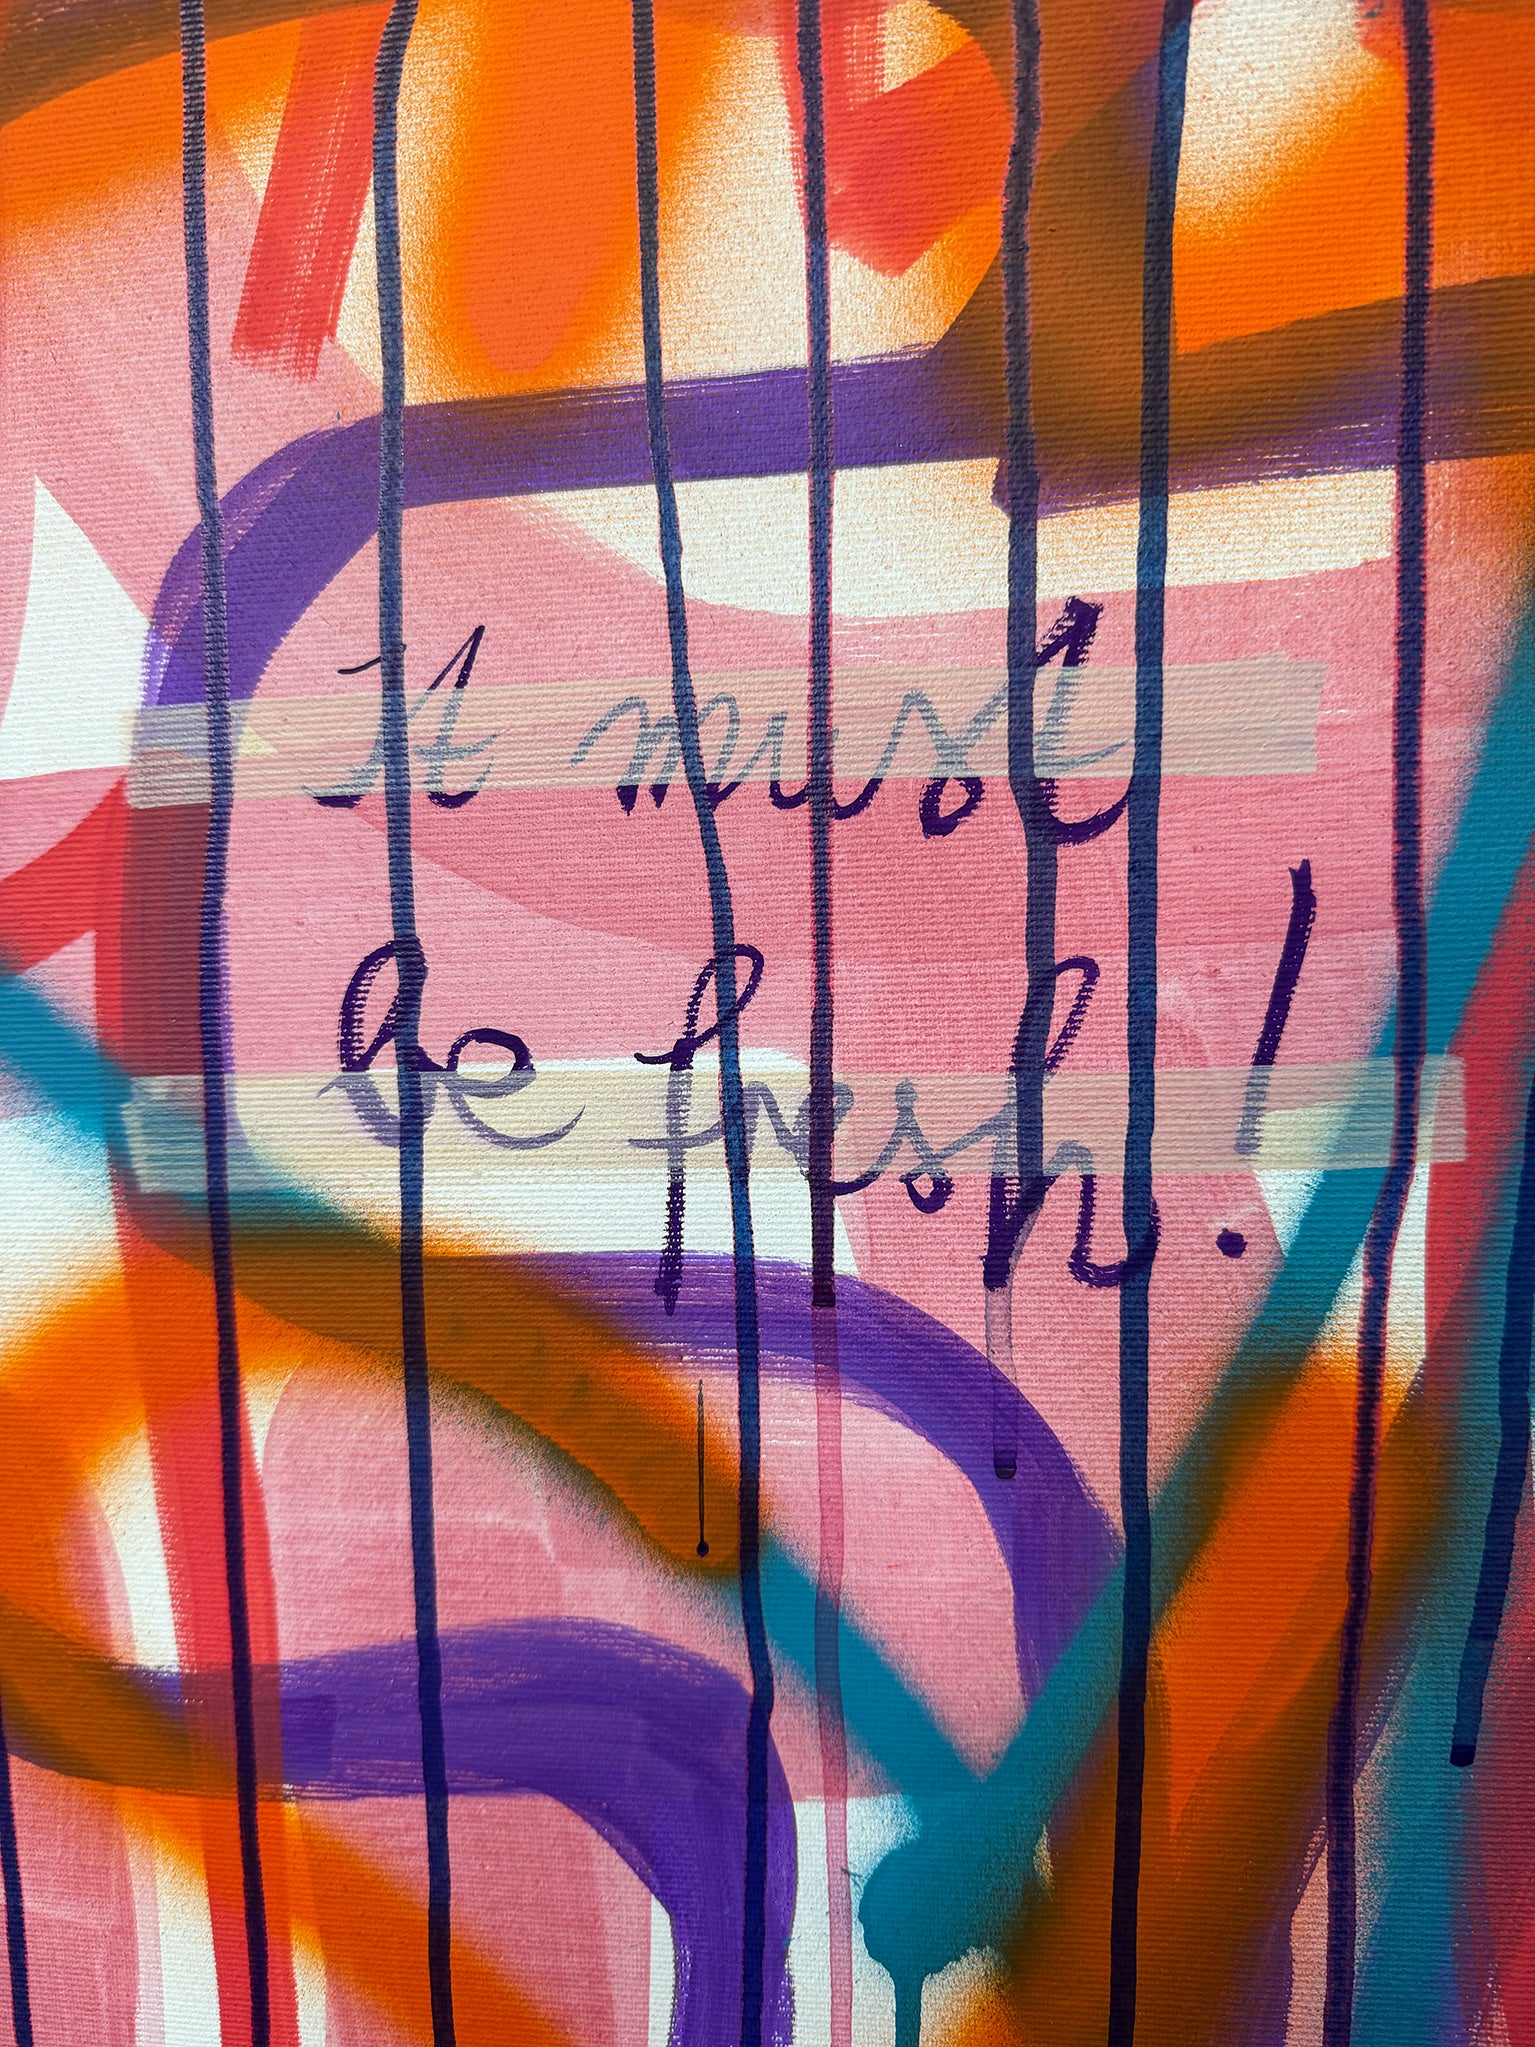 It must
be fresh!